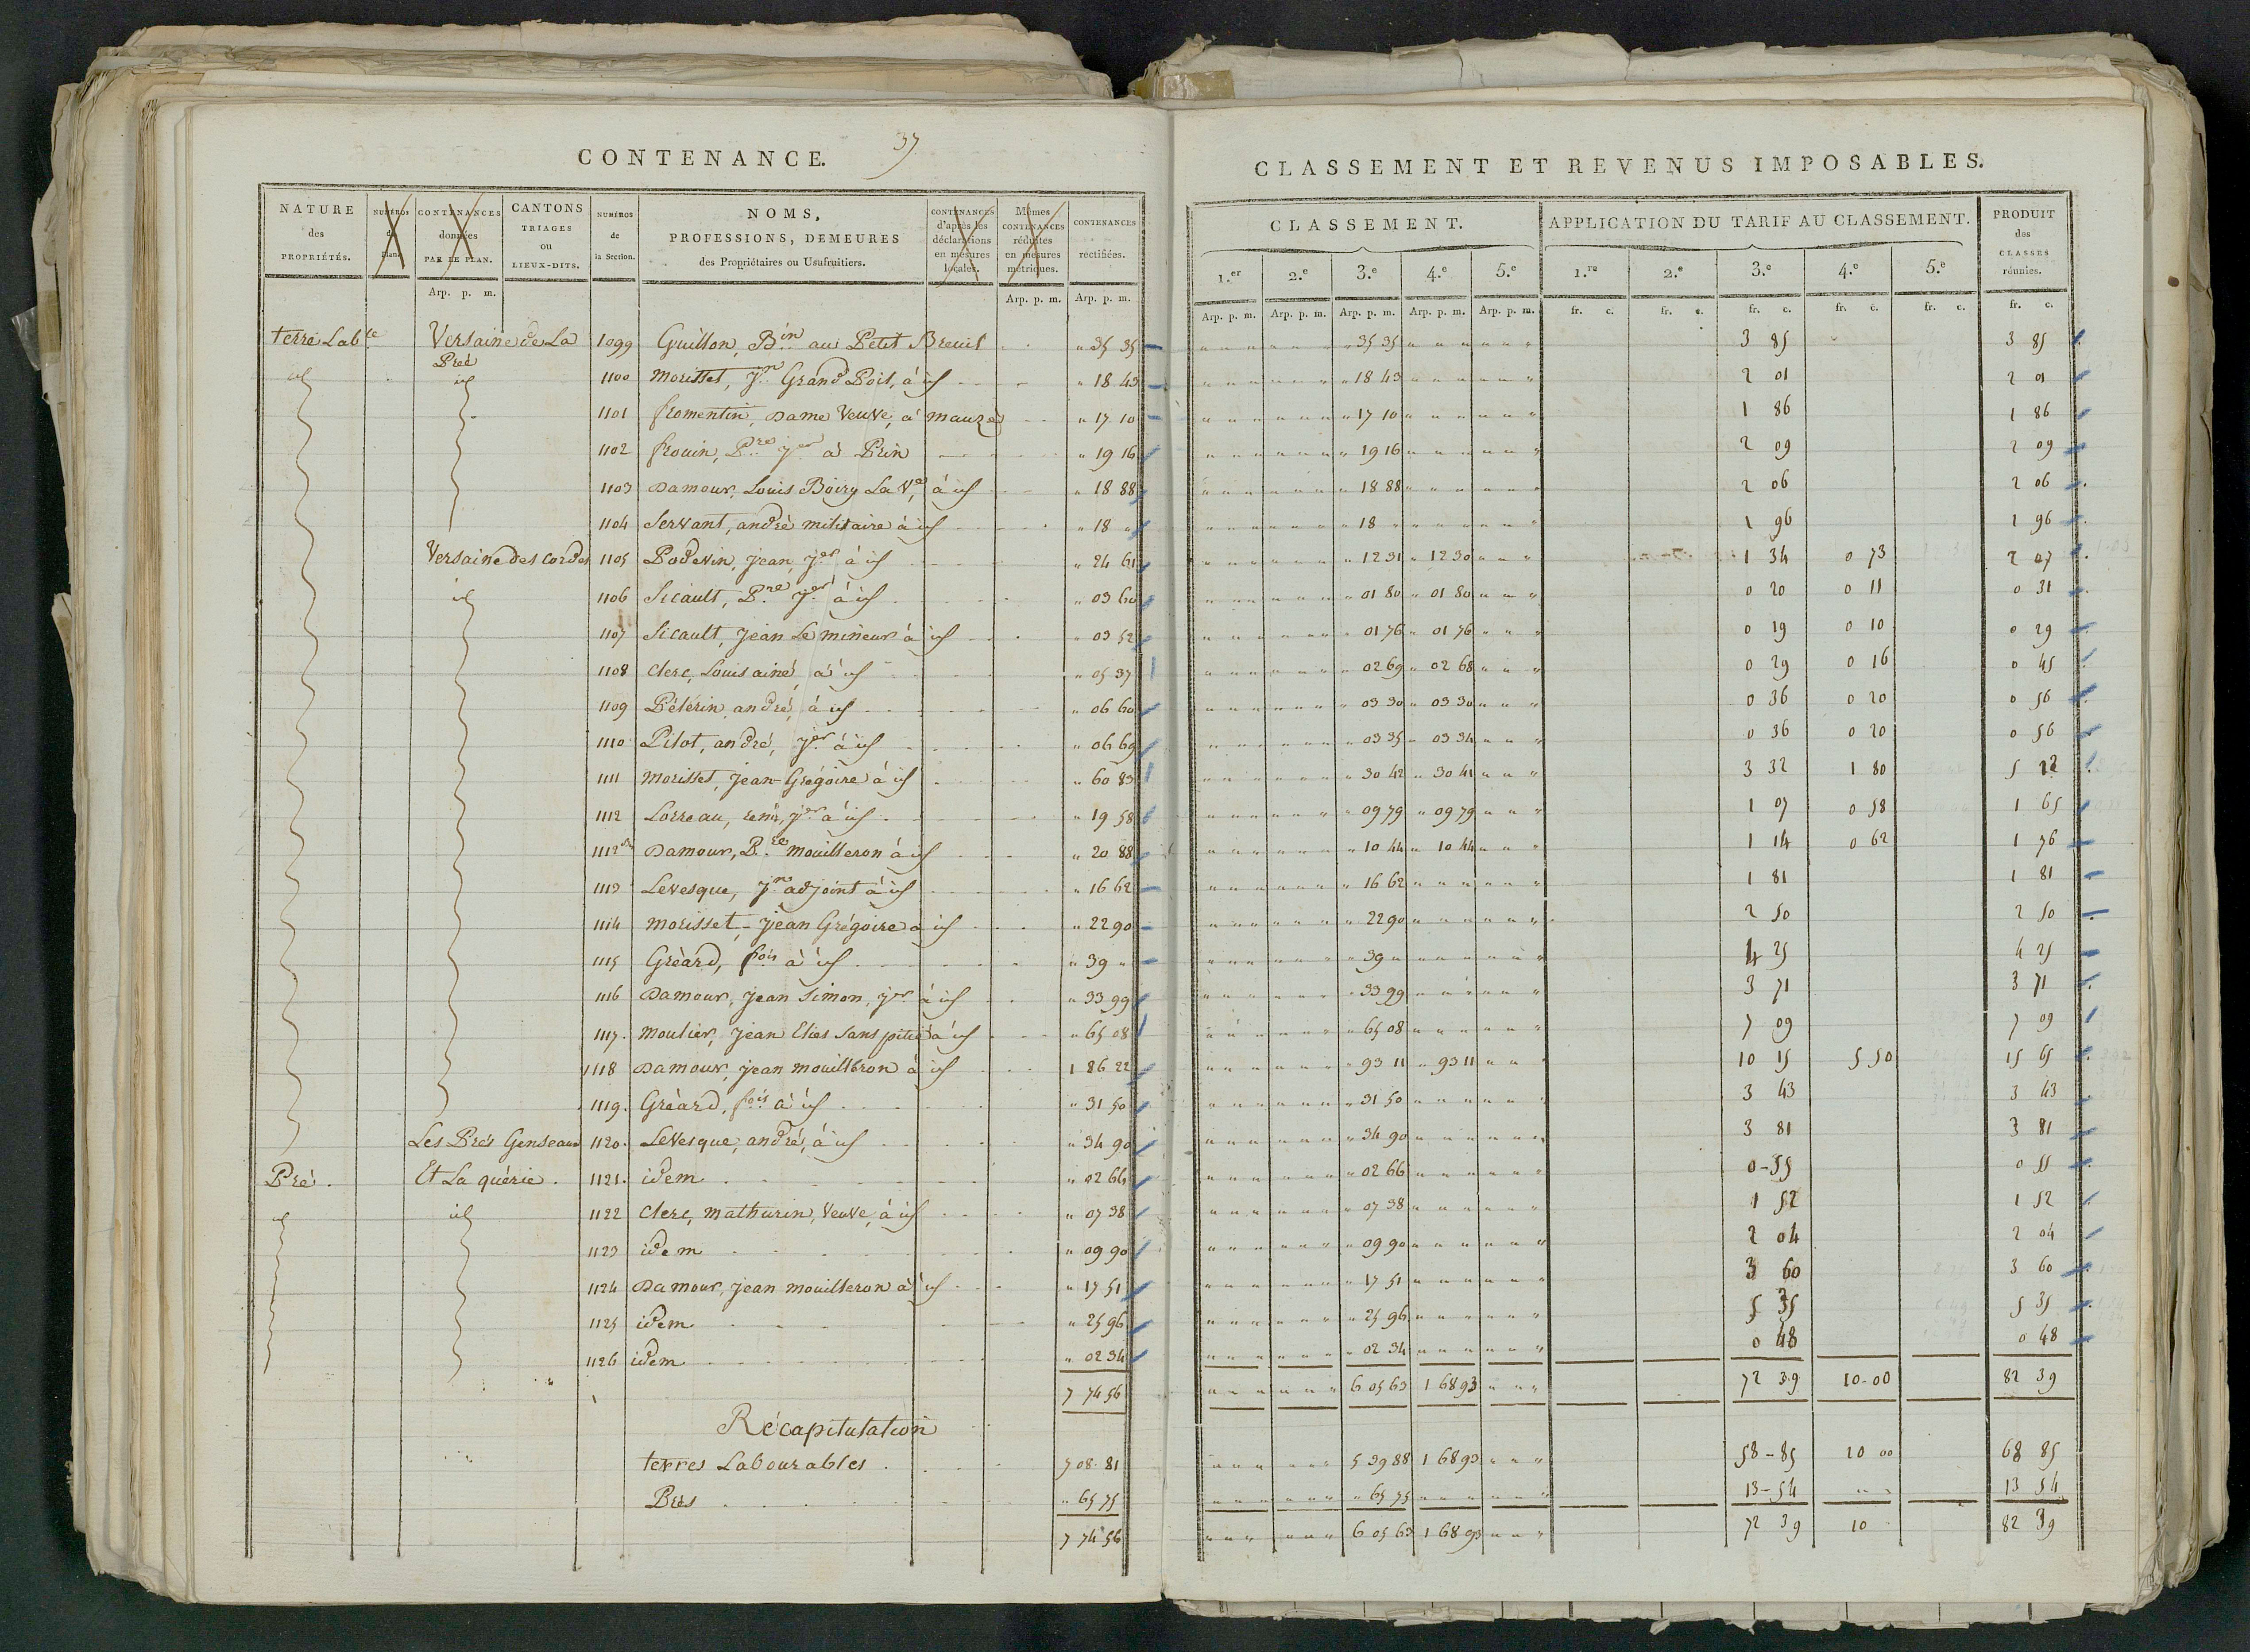 37
CONTENANCE.
NATURE des PROPRIÉTÉS. NUMÉROS du Plan. CONTENANCES données PAR LE PLAN. CANTONS TRIAGES ou LIEUX-DITS. NUMÉROS de la Section. NOMS, PROFESSIONS, DEMEURES des Propriétaires ou Usufruitiers. CONTENANCES d'après les déclarations en mesures locales. Mêmes CONTENANCES réduites en mesures métriques. CONTENANCES rectifiées.
Arp. p. m. Arp. p. m. Arp. p. m.
terre Lab.le Versaine de La Pré 1099 Guillon, B.in au Petit Breuil " 35 35
id id 1100 Morisset, J.n Grand Poil, à id " 18 43
1101 fromentin, Dame Veuve, à mauzé " 17 10
1102 frouin, P.re J.er à Prin " 19 16
1103 Damour, Louis Boiry La V.e, à id " 18 88
1104 Servant, andré militaire à id " 18 "
Versaine des Cordes 1105 Podevin, Jean, J.er à id " 24 61
id 1106 Sicault, P.re J.er à id " 03 60
1107 Sicault, Jean Le mineur à id " 03 52
1108 Clerc, Louis ainé, à id " 05 37
1109 Pélérin, andré, à id " 06 60
1110 Pilot, andré, J.er à id " 06 69
1111 Morisset, Jean-Grégoire à id " 60 83
1112 Lorreau, réné, J.er à id " 19 58
1112 bis Damour, P.re Mouilleron à id " 20 88
1113 Levesque, J.n adjoint à id " 16 62
1114 Morisset, Jean Grégoire à id " 22 90
1115 Gréard, f.ois à id " 39 "
1116 Damour, Jean Simon, J.er à id " 33 99
1117. Moulier, Jean Elies Sans pitié à id " 65 08
1118 Damour, Jean Mouilleron à id 1 86 22
1119. Gréard, f.ois à id " 31 50
Les Prés Genseaux 1120. Levesque, andré, à id " 34 90
Pré. Et La quérie. 1121. idem " 02 66
id id 1122 Clerc, Mathurin, Veuve, à id " 07 38
1123 idem " 09 90
1124 Damour, Jean Mouilleron à id " 17 51
1125 idem " 25 96
1126 idem " 02 34
7 74 56
Récapitulation
terres Labourables 7 08 81
Prés " 65 75
7 74 56
CLASSEMENT ET REVENUS IMPOSABLES.
CLASSEMENT. APPLICATION DU TARIF AU CLASSEMENT. PRODUIT des CLASSES réunies.
1.er 2.e 3.e 4.e 5.e 1.re 2.e 3.e 4.e 5.e
Arp. p. m. Arp. p. m. Arp. p. m. Arp. p. m. Arp. p. m. fr. c. fr. c. fr. c. fr. c. fr. c. fr. c.
" 35 35 3 85 3 85
" 18 43 2 01 2 01
" 17 10 1 86 1 86
" 19 16 2 09 2 09
" 18 88 2 06 2 06
" 18 " 1 96 1 96
" 12 31 " 12 30 1 34 0 73 2 07
" 01 80 " 01 80 0 20 0 11 0 31
" 01 76 " 01 76 0 19 0 10 0 29
" 02 69 " 02 68 0 29 0 16 0 45
" 03 30 " 03 30 0 36 0 20 0 56
" 03 35 " 03 34 0 36 0 20 0 56
" 30 42 " 30 41 3 32 1 80 5 12
" 09 79 " 09 79 1 07 0 58 1 65
" 10 44 " 10 44 1 14 0 62 1 76
" 16 62 1 81 1 81
" 22 90 2 50 2 50
" 39 " 4 25 4 25
" 33 99 3 71 3 71
" 65 08 7 09 7 09
" 93 11 " 93 11 10 15 5 50 15 65
" 31 50 3 43 3 43
" 34 90 3 81 3 81
" 02 66 0-55 0 55
" 07 38 1 52 1 52
" 09 90 2 04 2 04
" 17 51 3 60 3 60
" 25 96 5 35 5 35
" 02 34 0 48 0 48
6 05 63 1 68 93 72 39 10-00 82 39
5 39 88 1 68 93 58-85 10 00 68 85
" 65 75 13-54 " " 13 54
6 05 63 1 68 93 72 39 10 82 39